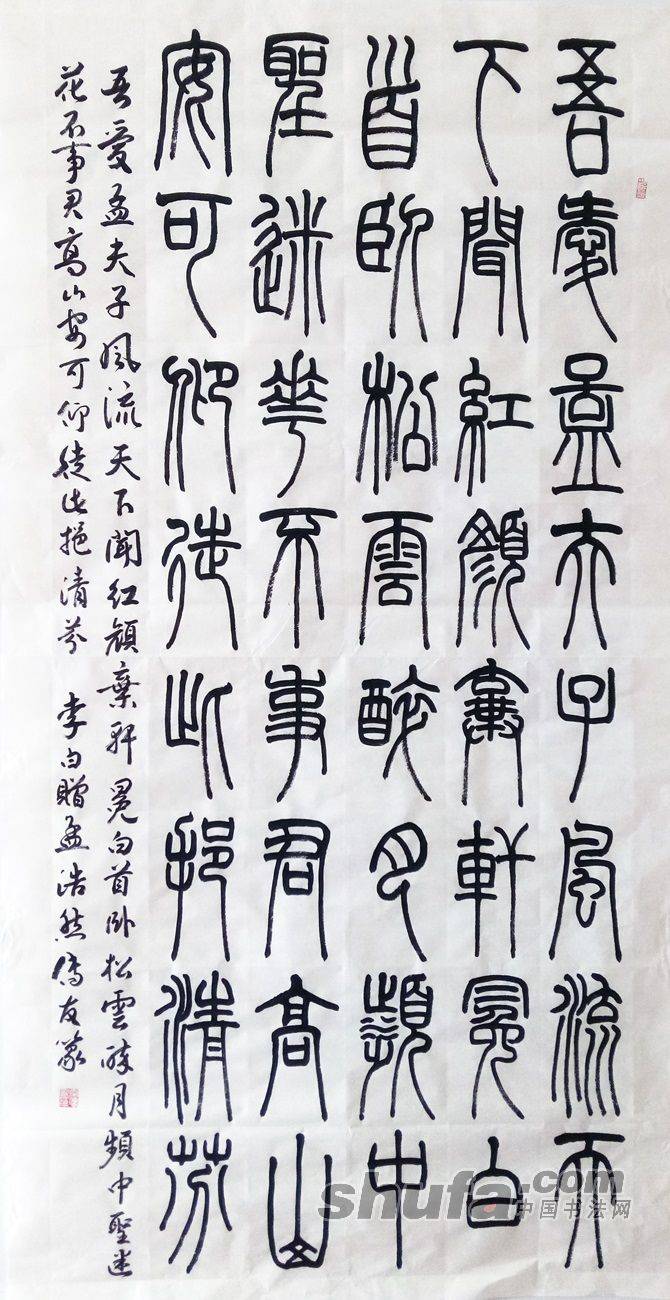 吾愛孟夫子風流天
下聞紅顏棄軒冕白
首臥松雲醉月頻中
聖迷華不事君高山
安可仰徒此挹清芬
吾愛孟夫子風流天下聞紅顏棄軒冕白首卧松雲醉月頻中聖迷
花不事君高山安可仰徒此挹清芬 李白贈孟浩然 友篆
shufa.com
中国书法网